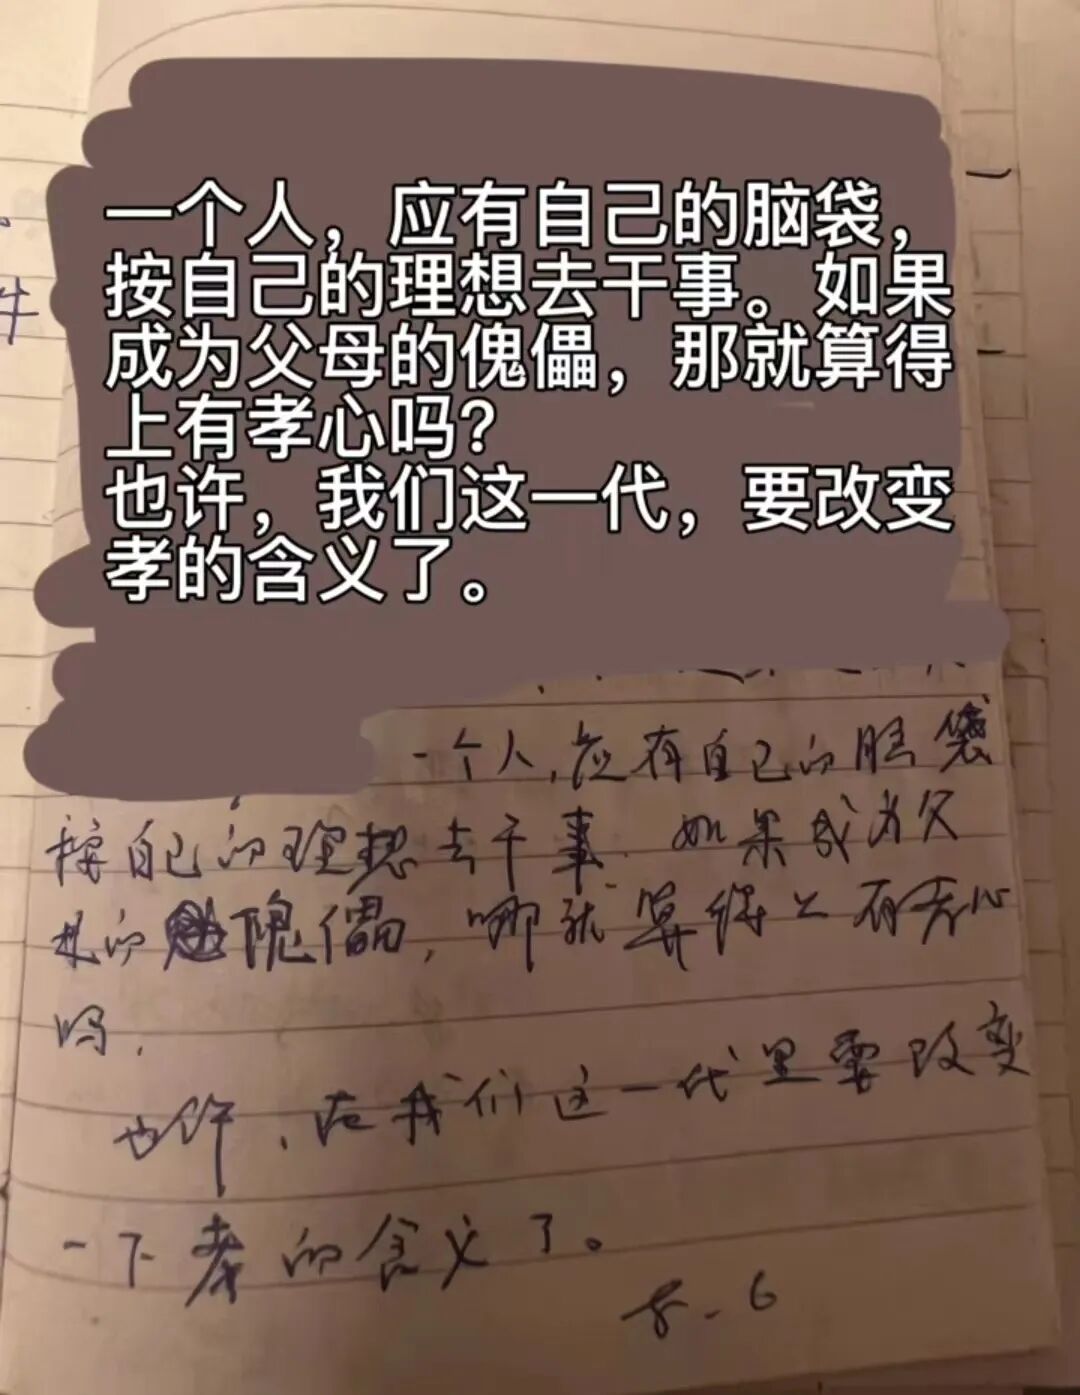 一个人，应有自己的脑袋，
按自己的理想去干事。如果
成为父母的傀儡，那就算得
上有孝心吗？
也许，我们这一代，要改变
孝的含义了。
一个人，应有自己的脑袋
按自己的理想去干事.如果成为父
母的傀儡，哪就算得上有孝心
吗.
也许，在我们这一代里要改变
一下孝的含义了。
8.6